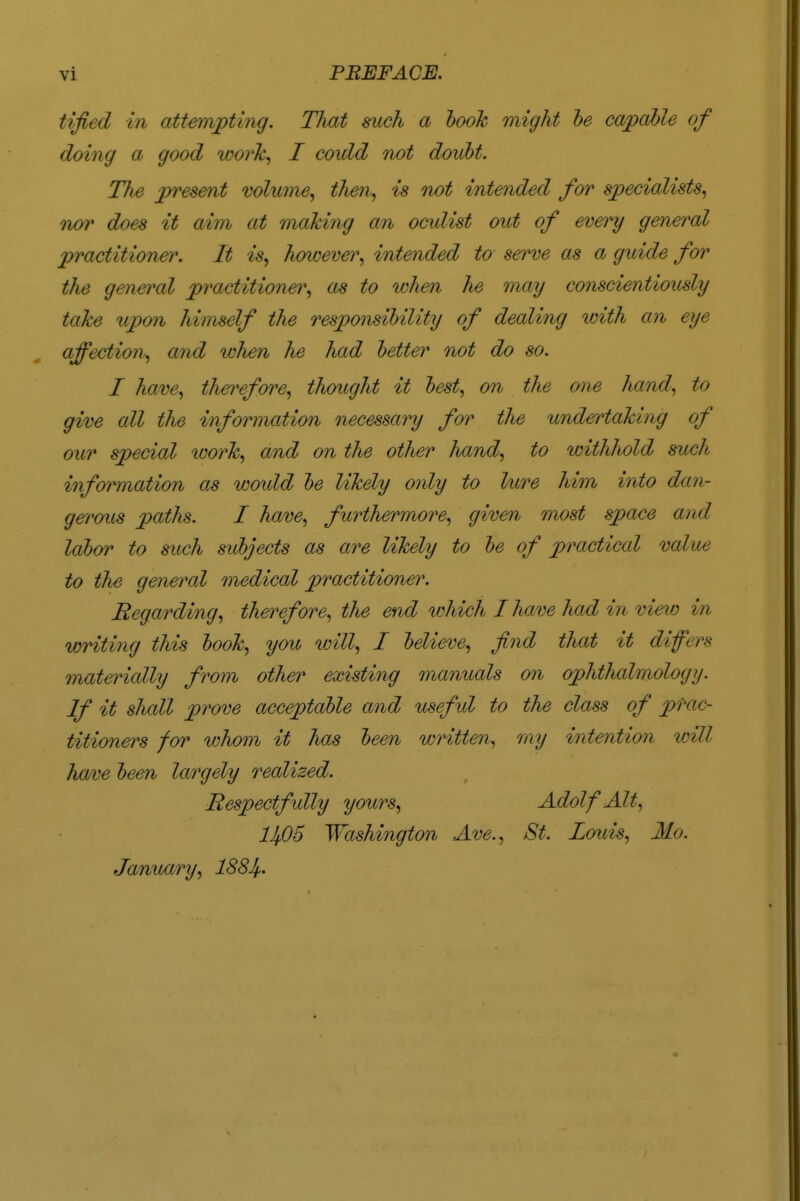 vi PREFACE.
tified in attempting. That such a book might be capable of
doing a good work, I could not doubt.
The present volume, then, is not intended for specialists,
nor does it aim at making an oculist out of every general
practitioner. It is, however, intended to serve as a guide for
the general practitioner, as to when he may conscientiously
take upon himself the responsibility of dealing with an eye
affection, and when he had better not do so.
I have, therefore, thought it best, on the one hand, to
give all the information necessary for the undertaking of
our special work, and on the other hand, to withhold such
information as would be likely only to lure him into dan-
gerous paths. I have, furthermore, given most space and
labor to such subjects as are likely to be of practical value
to the general medical practitioner.
Regarding, therefore, the end which I have had in view in
writing this book, you will, I believe, find that it differs
materially from other existing manuals on ophthalmology.
If it shall prove acceptable and useful to the class of prac-
titioners for whom it has been written, my intention will
have been largely realized.
Respectfully yours, Adolf Alt,
1405 Washington Ave., St. Louis, Mo.
January, 1884.